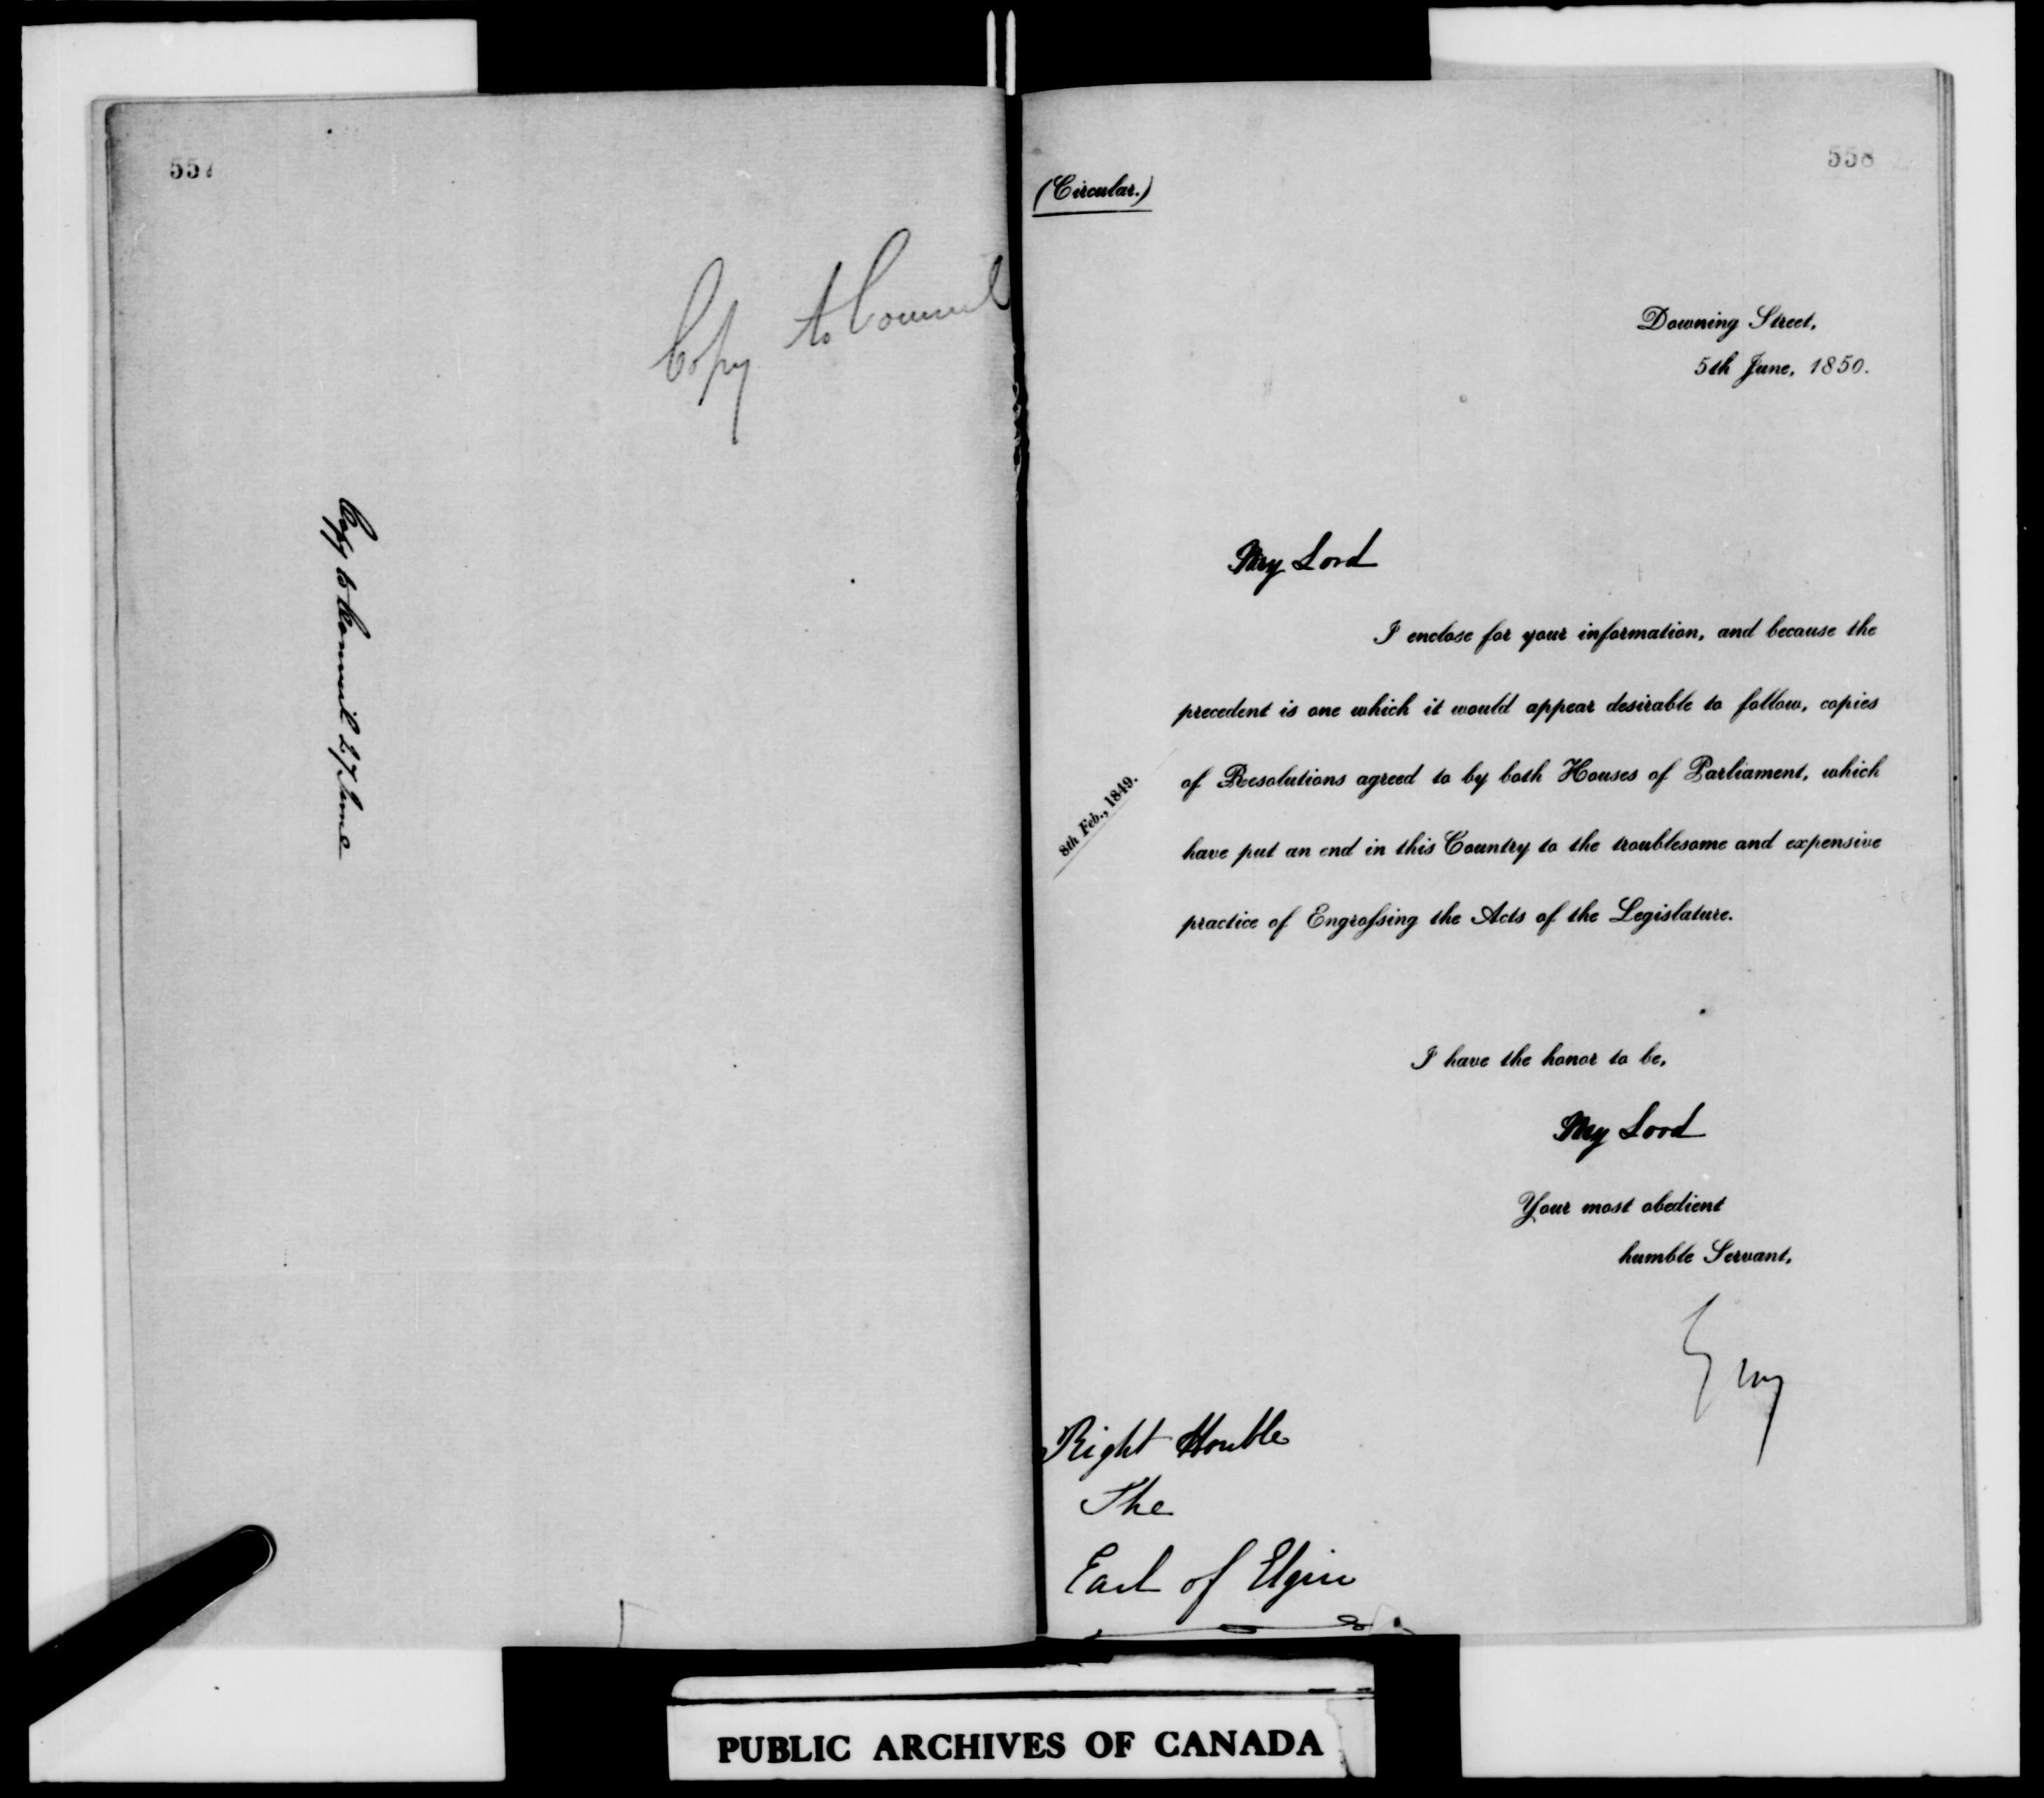 557
Copy to Council
Copy to Council 27 June
558
(Circular.)
Downing Street,
5th June, 1850.
My Lord
I enclose for your information, and because the
precedent is one which it would appear desirable to follow, copies
of Resolutions agreed to by both Houses of Parliament, which
8th Feb., 1849.
have put an end in this Country to the troublesome and expensive
practice of Engroſsing the Acts of the Legislature.
I have the honor to be,
My Lord
Your most obedient
humble Servant,
Grey
Right Honble
The
Earl of Elgin
PUBLIC ARCHIVES OF CANADA